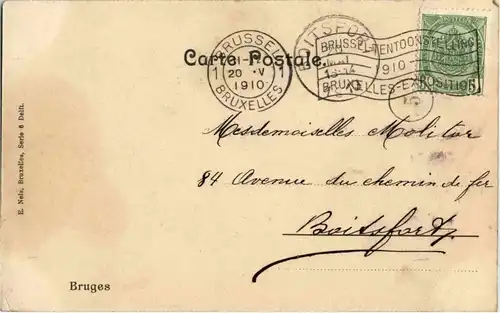 Carte Postale.
BRUSSEL
20 V
1910
BRUXELLES
BOITSFORT
BRUSSEL TENTOONSTELLING
1910
BRUXELLES-EXPOSITION
5
Mesdemoiselles Molitor
84 Avenue du chemin de fer
Boitsfort
E. Nels, Bruxelles, Serie 6 Delft.
Bruges